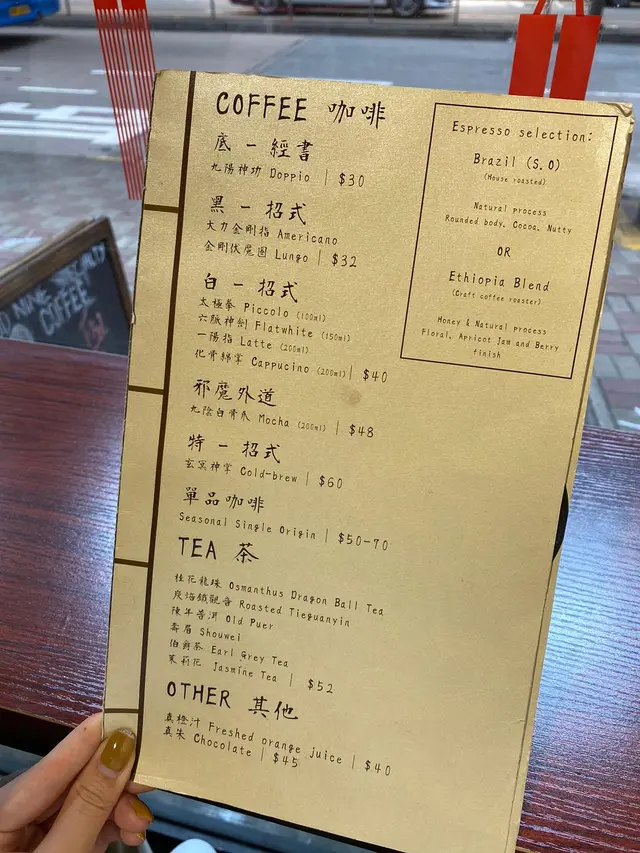 COFFEE 咖啡
底 一 經書
九陽神功 Doppio | $30
黑 一 招式
大力金剛指 Americano
金剛伏魔圈 Lungo | $32
白 一 招式
太極拳 Piccolo (100ml)
六脈神劍 Flatwhite (150ml)
一陽指 Latte (200ml)
化骨綿掌 Cappucino (200ml) | $40
邪魔外道
九陰白骨爪 Mocha (200ml) | $48
特 一 招式
玄冥神掌 Cold-brew | $60
單品咖啡
Seasonal Single Origin | $50-70
TEA 茶
桂花龍珠 Osmanthus Dragon Ball Tea
炭焙鐵觀音 Roasted Tieguanyin
陳年普洱 Old Puer
壽眉 Shouwei
伯爵茶 Earl Grey Tea
茉莉花 Jasmine Tea | $52
OTHER 其他
真橙汁 Freshed orange juice | $40
真朱 Chocolate | $45
Espresso selection:
Brazil (S.O)
(House roasted)
Natural process
Rounded body, Cocoa, Nutty
OR
Ethiopia Blend
(Craft coffee roaster)
Honey & Natural process
Floral, Apricot Jam and Berry
finish
COFFEE